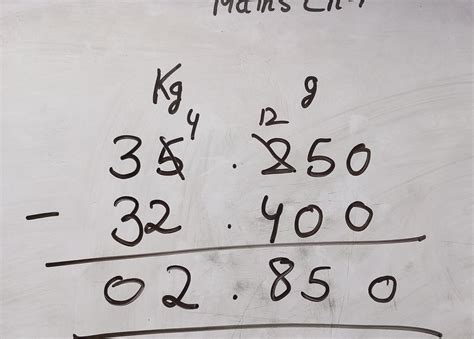 Maths Ch-
Kg g
4 12
35 . 250
- 32 . 400
02 . 850